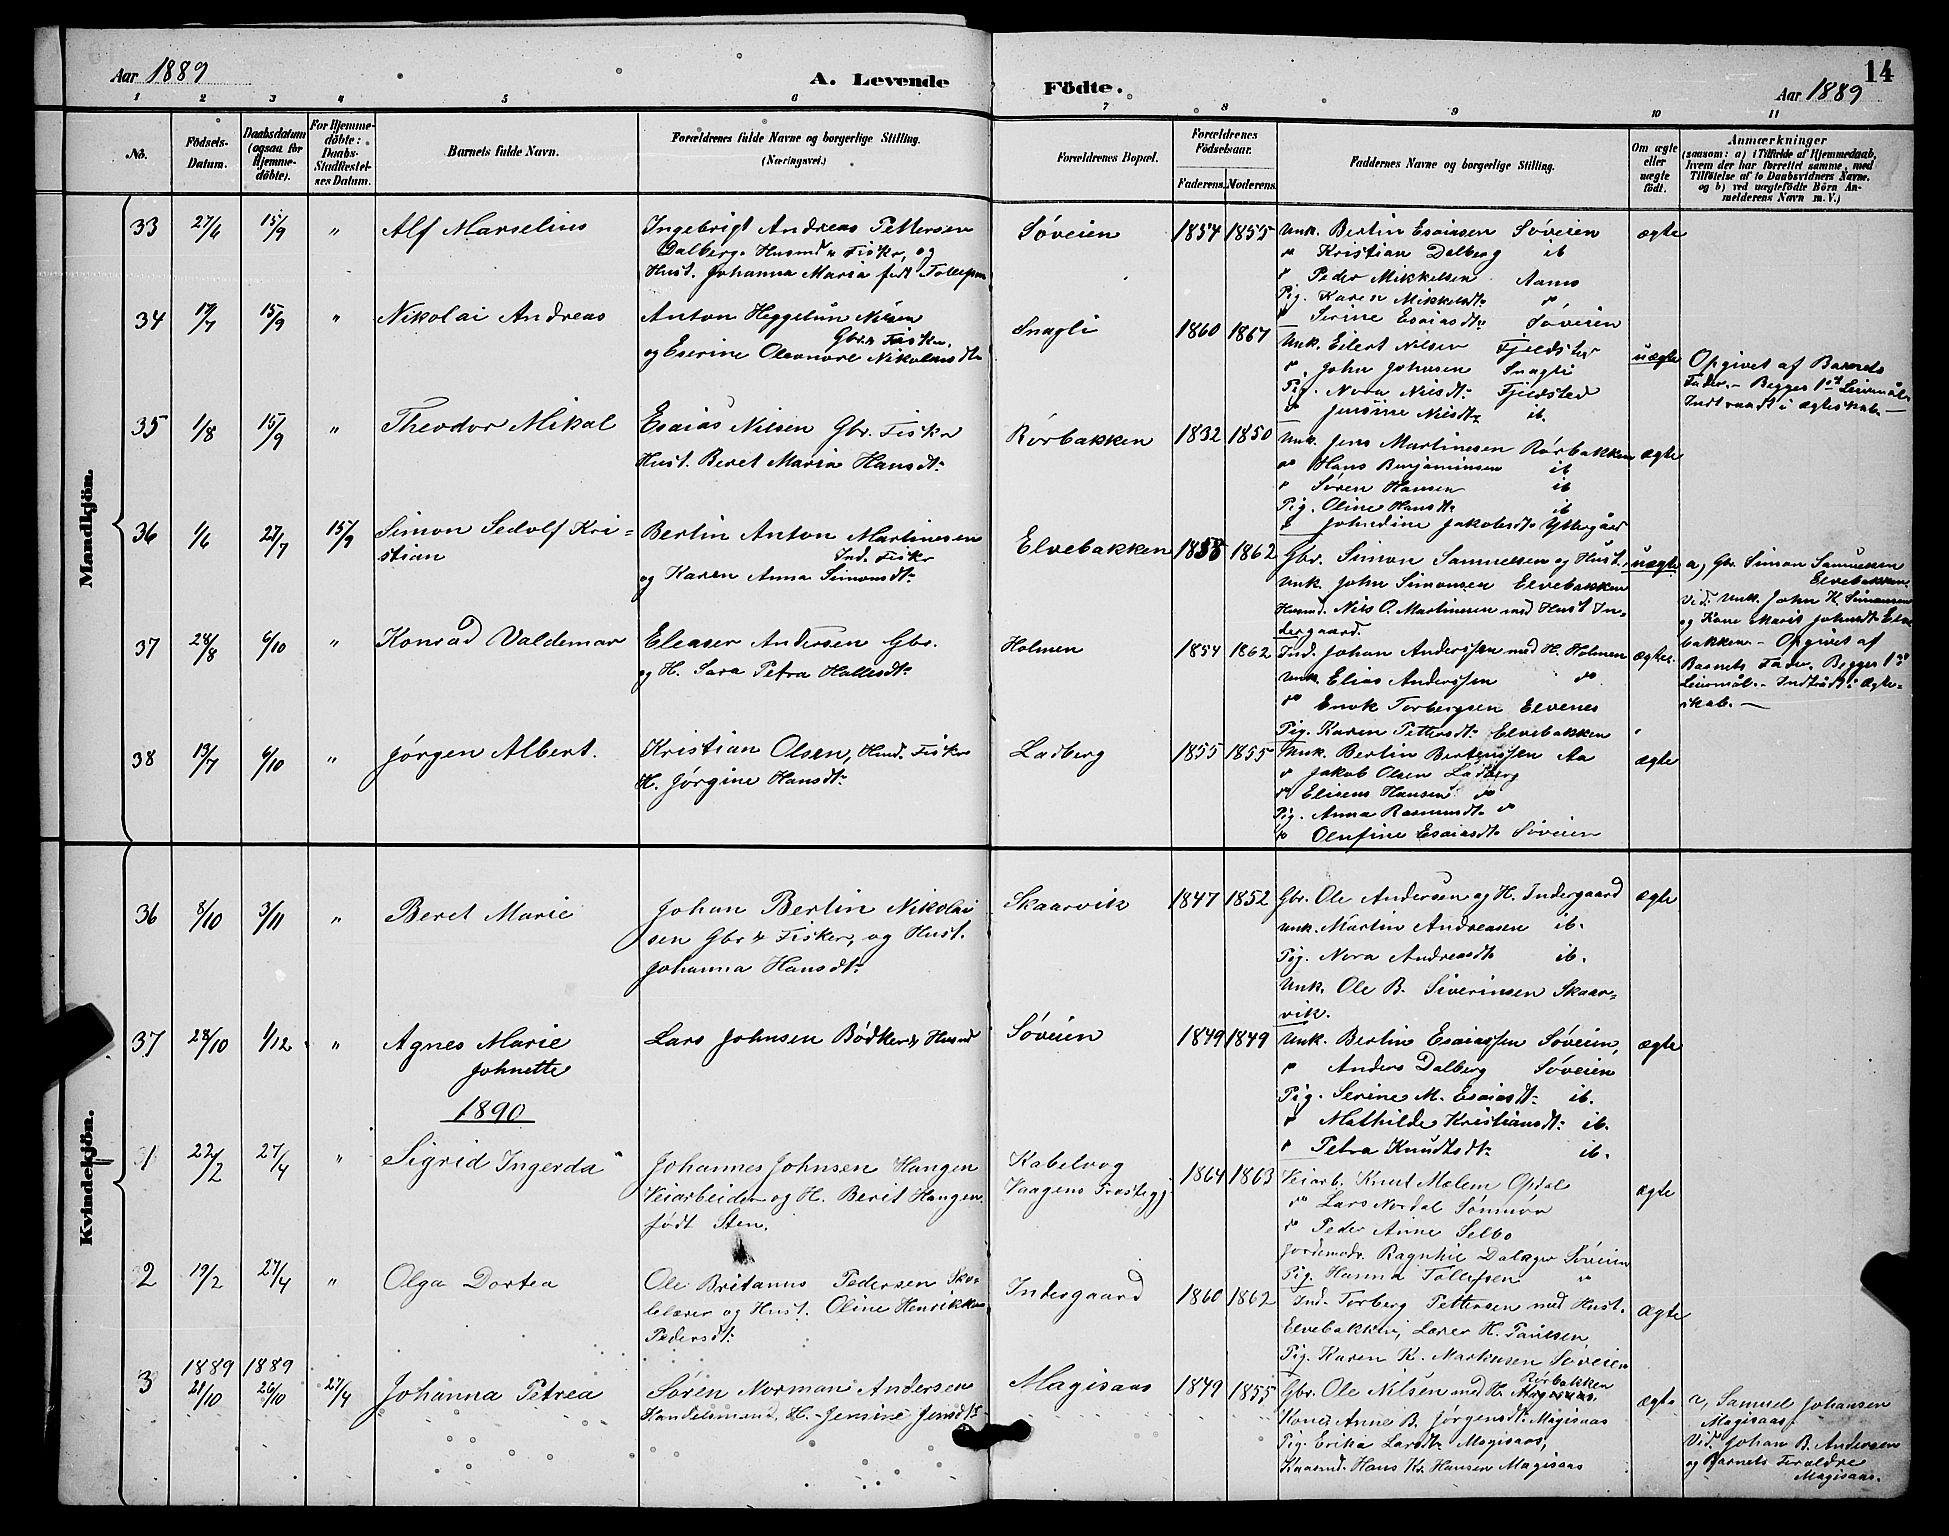 14
Aar 1889
A. Levende Födte.
Aar 1889
1 2 3 4 5 6 7 8 9 10 11
No.
Födsels-
Datum.
Daabsdatum
(ogsaa for
Hjemme-
döbte).
For Hjemme-
döbte:
Daabs-
Stadfæstel-
ses Datum.
Barnets fulde Navn.
Forældrenes fulde Navne og borgerlige Stilling.
(Næringsvei.)
Forældrenes Bopæl.
Forældrenes
Födselsaar.
Faderens. Moderens.
Faddernes Navne og borgerlige Stilling.
Om ægte
eller
uægte
födt.
Anmærkninger
(saasom: a) i Tilfælde af Hjemmedaab,
hvem der har forrettet samme, med
Tilföielse af to Daabsvidners Navne.
og b) ved uægtefödte Börn An-
melderens Navn m. V.)
Mandkjön.
33 27/6 15/9 " Alf Marselius
Ingebrigt Andreas Pettersen
Dalberg. Husmd & Fisker, og
Hust. Johanna Maria født
Søveien 1854 1855
Unk. Bertin Esaiasen Søveien
" Kristian Dalberg ib
" Peder Mikkelsen Aanes
Pig. Karen Mikkelsdt. "
" Serine Esaiasdt. Søveien
ægte
34 19/7 15/9 " Nikolai Andreas
Anton Heggelun Nilsen
Gbr. & Fisker.
og Eserine Oleonore Nikolaisdt.
Snagli 1860 1867
Unk. Eilert Nilsen Fjeldsted
" John Johnsen Snagli
Pig. Nora Nilsdt. Fjeldsted
" Jensine Nilsdt. ib.
uægte
Opgivet af Barnets
Fader. - Begges 1ste Leiermål.
Indtraadt i Ægteskab. -
35 1/8 15/9 " Theodor Mikal
Esaias Nilsen Gbr. Fisker
Hust. Beret Maria Hansdt.
Rørbakken 1832 1850
Unk. Jens Martinesen Rørbakken
" Hans Benjaminsen ib
" Søren Hansen ib
Pig. Oline Hansdt. ib
" Johndine Jakobsdt. Yttergård
ægte
36 1/6 27/7 15/9 Simon Sedolf Kri-
stian
Bertin Anton Martinesen
Ind. Fisker
og Karen Anna Simonsdt.
Elvebakken 1858 1862
Gbr. Simon Samuelsen og Hust.
Unk. John Simonsen Elvebakken
Husmd. Nils O. Martinesen med Hust. In-
dergaard.
uægte
a, Gbr. Simon Samuelsen
Elvebakken.
Vid. Unk. John H. Simonsen
og Kone Maris Johnsdt. Elve
bakken. - Opgivet af
Barnets Fader. Begges 1ste
Leiermål. - Indtrådt i Ægte-
skab. -
37 28/8 6/10 " Konrad Valdemar
Eleaser Andersen Gbr.
og H. Sara Petra Hallesdt.
Holmen 1854 1862
Ind. Johan Anderssen med H. Holmen
Unk. Elias Anderssen "
" Enok Torbergsen Elvenes
Pig. Karen Pettersdt. Elvebakken
ægte.
38 19/7 6/10 " Jørgen Albert.
Kristian Olsen, Husmd. Fisker
H. Jørgine Hansdt.
Ladberg 1855 1855
Unk. Bertin Berteussen Aa
" Jakob Olsen Ladberg
" Eliseus Hansen "
Pig. Anna Rasmusdt. "
" Olufine Esaiasdt. Søveien
ægte
Kvindekjön.
36 8/10 3/11 " Beret Marie
Johan Bertin Nikolai
sen Gbr & Fisker, og Hust.
Johanna Hansdt.
Skaarvik 1847 1852
Gbr. Ole Andersen og H. Indergaard
Unk. Martin Andreasen ib.
Pig. Nora Andreasdt. ib.
Unk. Ole B. Siverinsen Skaar-
vik.
ægte
37 28/10 1/12 " Agnes Marie
Johnette
Lars Johnsen Bødker & Husmd
Søveien 1849 1849
Unk. Bertin Esaiassen Søveien,
" Anders Dalberg Søveien
Pig. Serine M. Esaiasdt. ib.
" Mathilde Kristiansdt. ib.
" Petra Knudtsdt. ib.
ægte
1890
1 22/2 27/4 " Sigrid Ingerda
Johannes Johnsen Haugen
Veiarbeider og H. Berit Haugen
født Sten.
Kabelvog
Vaagens Prestegj. 1864 1863
Veiarb. Knut Mælem Opdal
" Lars Nordal Sønmør
" Peder Aune Selbo
Jordemodr. Ragnhil Dalager Søveien
Pig. Hanna Tollefsen "
ægte
2 19/2 27/4 " Olga Dortea
Ole Britanus Pedersen Sko-
lelærer og Hust. Oline Henrikke
Pedersdt.
Indergaard 1860 1862
Ind. Torberg Pettersen med Hust.
Elvebakken, Lærer H. Paulsen
Pig. Karen K. Martinsen Søveien
Ægte
3 1889 21/10 1889 26/10 27/4 Johanna Petrea
Søren Norman Andersen
Handelsmand, H. Jensine Jensdt.
Magisaas 1849 1855
Gbr. Ole Nilsen med H. Rørbakken
Kone Anne B. Jørgensdt. Magisaas
Pig. Erika Larsdt. Magisaas,
Hans Kr. Hansen Magisaas
ægte
a, Samuel Johansen
Magisaas.
Vid. Johan B. Andersen
og Barnets Forældre
Magisaas.